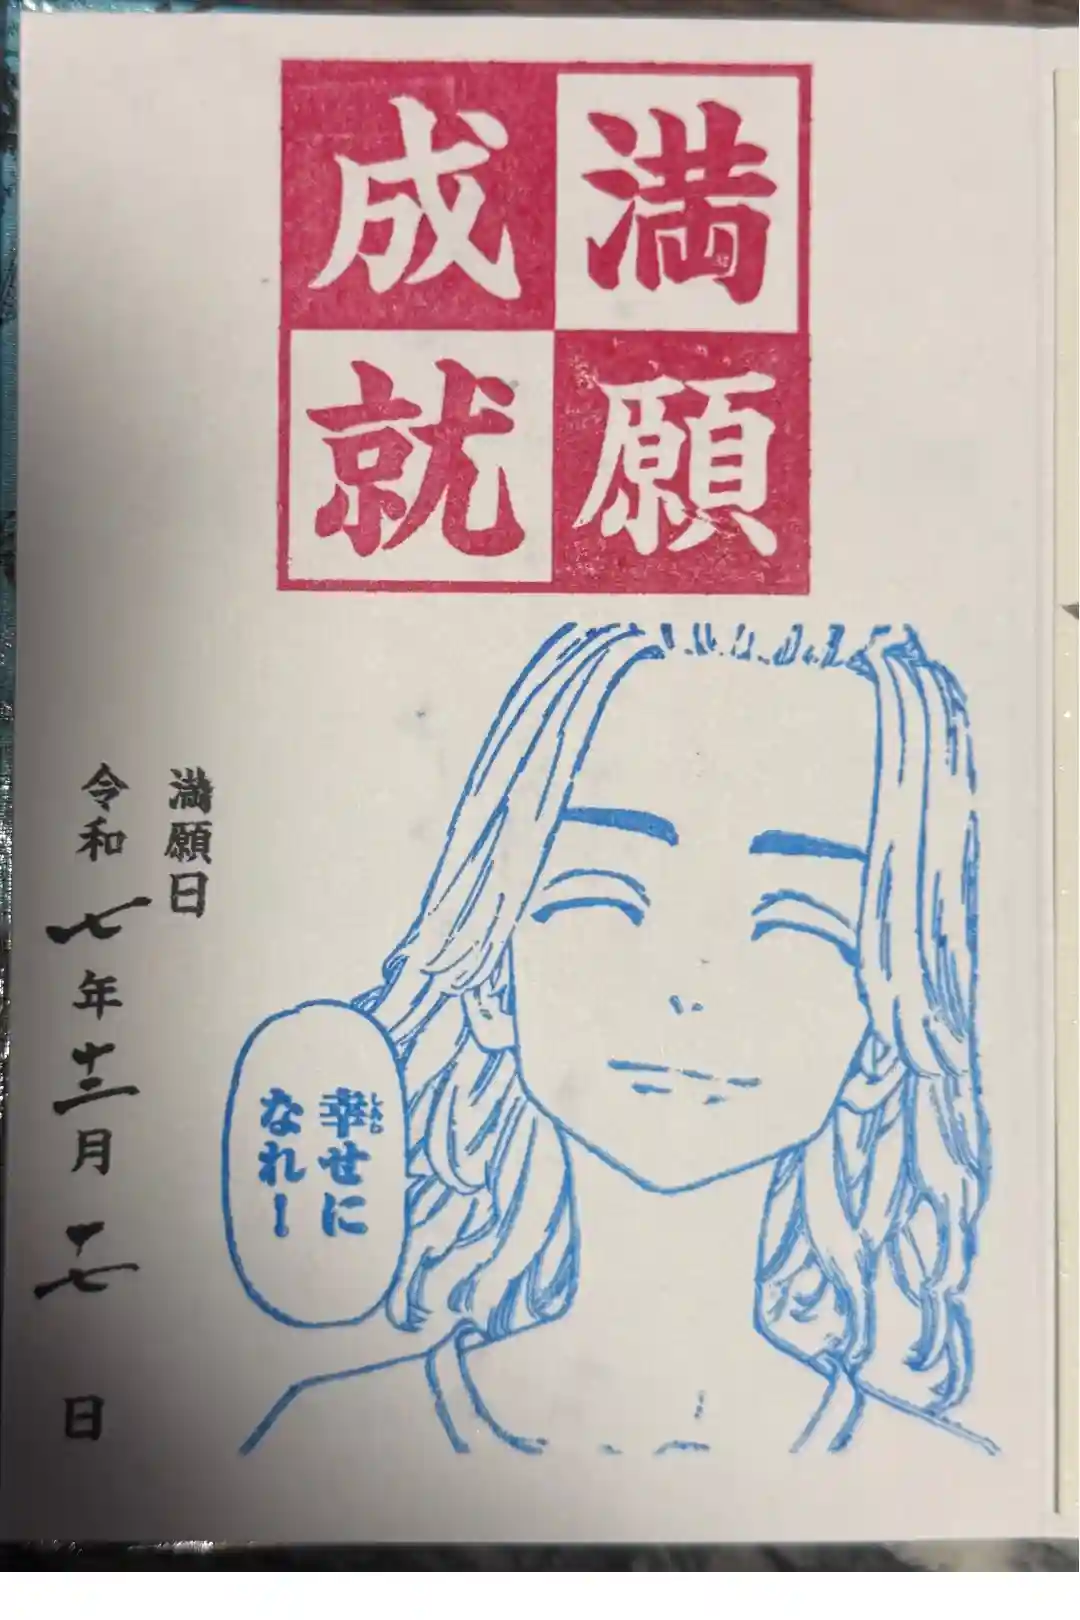 満願
成就
満願日
令和七年十二月十七日
幸せに
しあわ
なれー